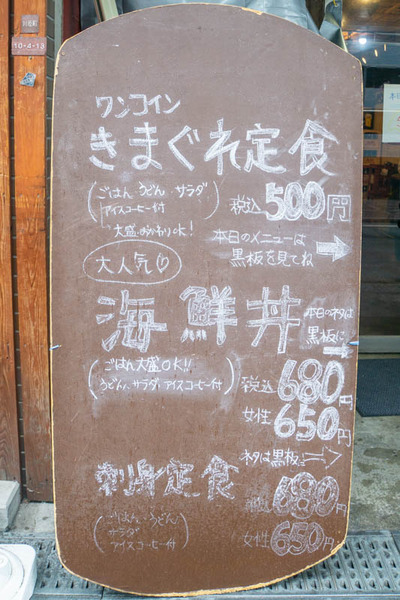 10-4-13
ワンコイン
きまぐれ定食
(ごはん、うどん、サラダ
アイスコーヒー付)
税込500円
大盛、おかわりOK!
本日のメニューは→
黒板を見てね
大人気♡
海鮮丼
本日のネタは
黒板に→
(ごはん大盛OK!!
うどん、サラダ、アイスコーヒー付)
税込680円
女性650円
刺身定食
ネタは黒板に→
税込680円
(ごはん、うどん
サラダ
アイスコーヒー付)
女性650円